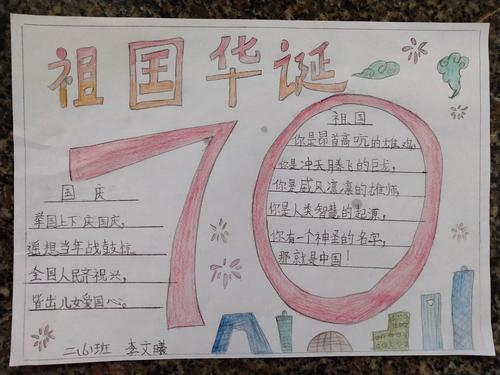 祖国华诞
70
国庆
举国上下庆国庆，
遥想当年战鼓擂。
全国人民齐祝兴，
皆出儿女爱国心。
祖国
你是昂首高吭的雄鸡，
你是冲天腾飞的巨龙，
你是威风凛凛的雄师，
你是人类智慧的起源，
你有一个神圣的名字，
那就是中国！
二(6)班 李文曦